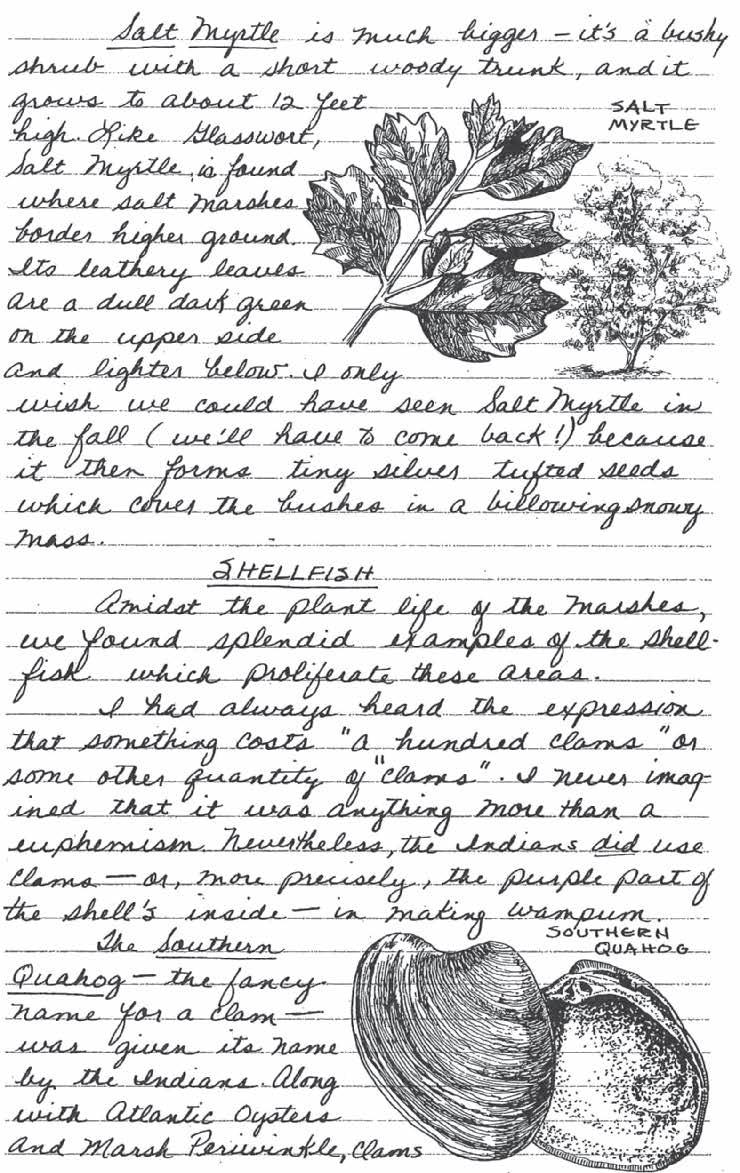 Salt Myrtle is much bigger – it's a bushy
shrub with a short woody trunk, and it
grows to about 12 feet
high. Like Glasswort,
Salt Myrtle is found
where salt marshes
border higher ground.
Its leathery leaves
are a dull dark green
on the upper side
and lighter below. I only
wish we could have seen Salt Myrtle in
the fall (we'll have to come back!) because
it then forms tiny silver tufted seeds
which cover the bushes in a billowing snowy
mass.
SALT
MYRTLE
SHELLFISH
Amidst the plant life of the marshes,
we found splendid examples of the shell-
fish which proliferate these areas.
I had always heard the expression
that something costs "a hundred clams" or
some other quantity of "clams". I never imag-
ined that it was anything more than a
euphemism. Nevertheless, the Indians did use
clams – or, more precisely, the purple part of
the shell's inside – in making wampum.
The Southern
Quahog – the fancy
name for a clam –
was given its name
by the Indians. Along
with Atlantic Oysters
and Marsh Periwinkle, clams
SOUTHERN
QUAHOG